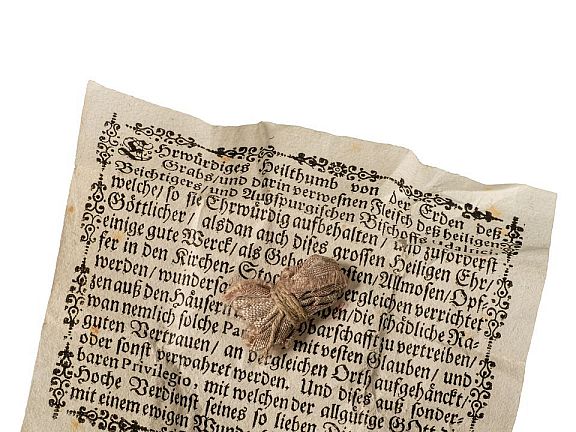 Ehrwürdiges Heilthumb von der Erden deß
Grabs/ und darin verwesnen Fleisch deß heiligen
Beichtigers/ und Augspurgischen Bischoffs Udalrici
welche/ so sie Ehrwürdig aufbehalten/ und zuforderst
Göttlicher/ alsdan auch dises grossen Heiligen Ehr/
einige gute Werck/ als Gebett Fasten Allmosen/ Opf-
fer in den Kirchen-Stock dergleichen verrichtet
werden/ wundersa die schädliche Ra-
zen auß den Häusern zu vertreiben/
wan nemlich solche Pa obarschafft mit vesten Glauben/ und
guten Vertrauen/ an dergleichen Orth aufgehänckt/
oder sonst verwahret werden. Und dises auß sonder-
baren Privilegio, mit welchen der allgütige GOtt
Hoche Verdienst seines so lieben
mit einem ewigen